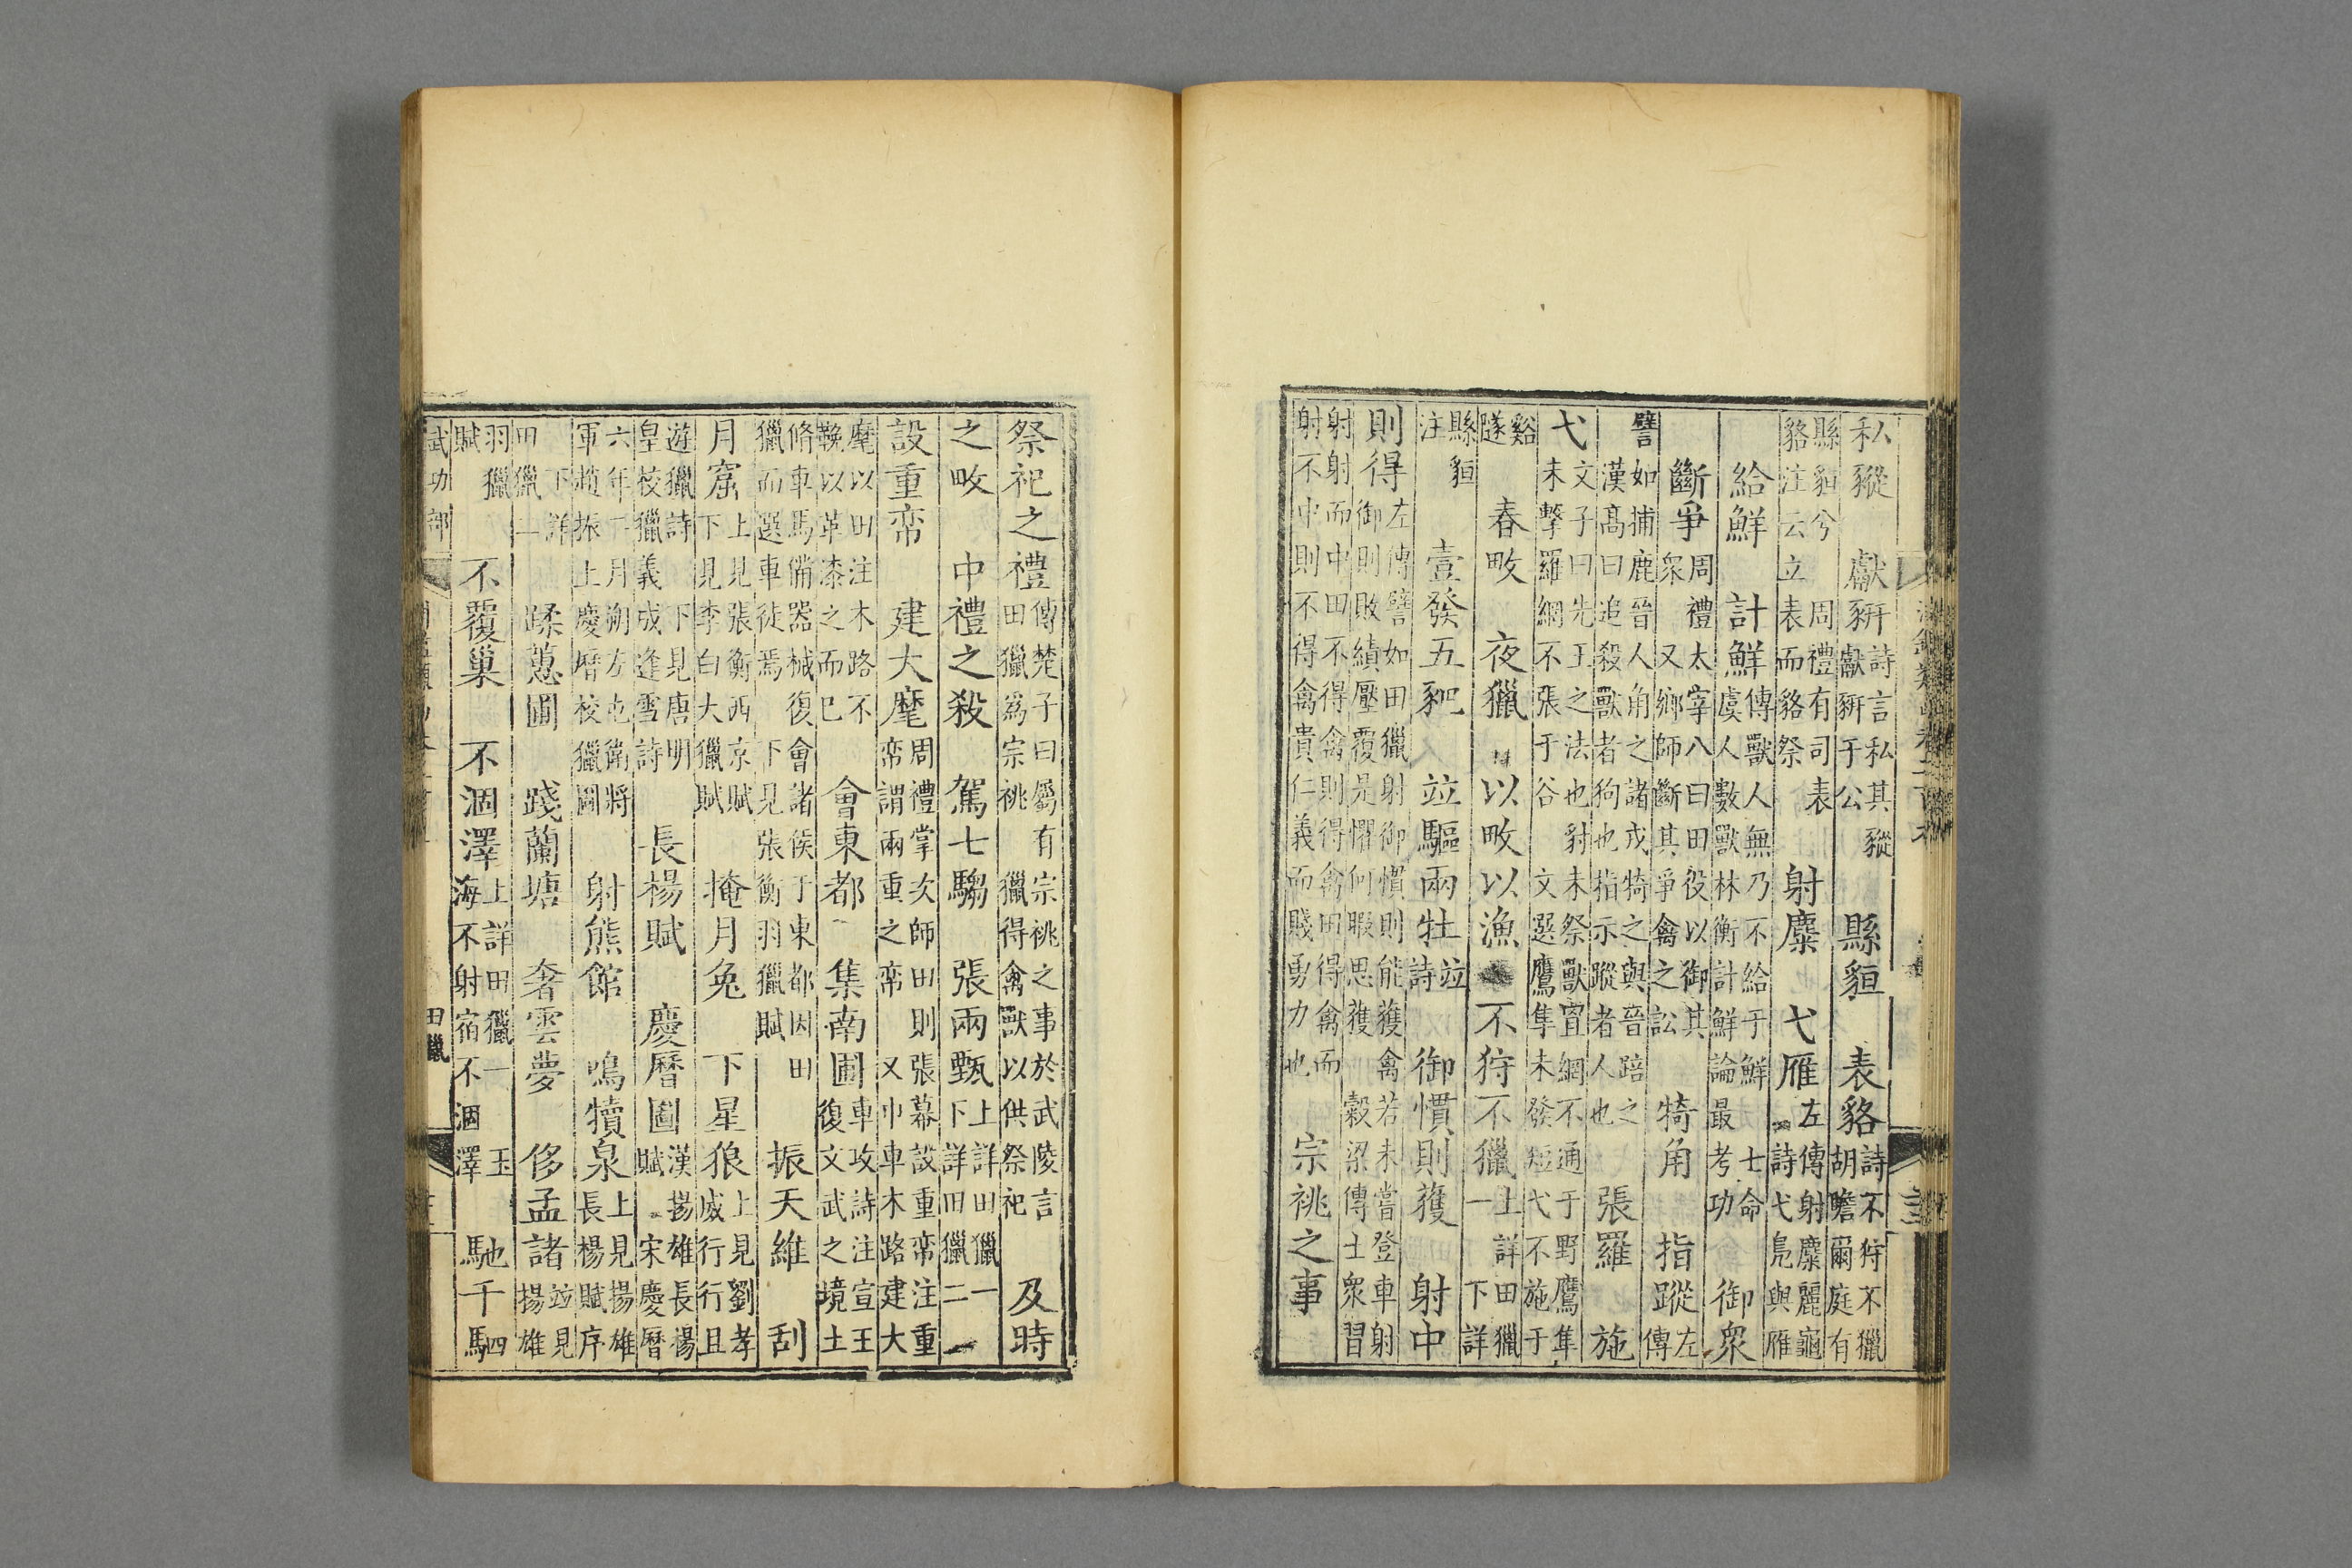 私豵　獻豜詩言私其豵獻豜于公　縣貆　表貉詩不狩不獵胡瞻爾庭有
縣貆兮　周禮有司表貉注云立表而貉祭　射麋　弋雁左傳射麋麗龜詩弋鳧與雁
給鮮　計鮮傳獸人無乃不給于鮮　士命虞人數獸林衡計鮮論最考功　御衆
斷爭周禮太宰八曰田役以御其衆　又鄉師斷其爭禽之訟　犄角　指蹤左傳
譬如捕鹿晉人角之諸戎犄之與晉踣之漢高曰追殺獸者狗也指示蹤者人也　張羅　施
弋文子曰先王之法也豺未祭獸罝網不通于野鷹隼未擊羅網不張于谷　文選鷹隼未發弋不施于
谿隧　春畋　夜獵　以畋以漁　不狩不獵上詳田獵一　下詳
縣貆注　壹發五豝　竝驅兩牡竝詩　御慣則獲　射中
則得左傳譬如田獵射御慣則能獲禽若未嘗登車射御則敗績壓覆是懼何暇思獲　穀梁傳士衆習
射射而中田不得禽則得禽田得禽而射不中則不得禽貴仁義而賤勇力也　宗祧之事
祭祀之禮傳楚子曰屬有宗祧之事於武陵言田獵爲宗祧　獵得禽獸以供祭祀　及時
之畋　中禮之殺　駕七騶　張兩甄上詳田獵一下詳田獵二
設重帟　建大麾周禮掌次師田則張幕設重帟注重帟謂兩重之帟　又巾車木路建大
麾以田注木路不鞔以革漆之而已　會東都　集南囿車攻詩注宣王復文武之境土
脩車馬備器械復會諸侯于東都因田獵而選車徒焉　下見張衡羽獵賦　振天維　刮
月窟上見張衡西京賦下見李白大獵賦　掩月兔　下星狼上見劉孝威行行且
遊獵詩　下見唐明皇校獵義成逢雪詩　長楊賦　慶曆圖漢揚雄長楊賦　宋慶曆
六年十一月朔方屯衛將軍趙振上慶曆校獵圖　射熊館　鳴犢泉上見揚雄長楊賦序
下詳田獵二　蹂蕙圃　踐蘭塘　奢雲夢　侈孟諸竝見揚雄
羽獵賦　不覆巢　不涸澤上詳田獵一　玉海不射宿不涸澤　馳千駟
武功部　田獵